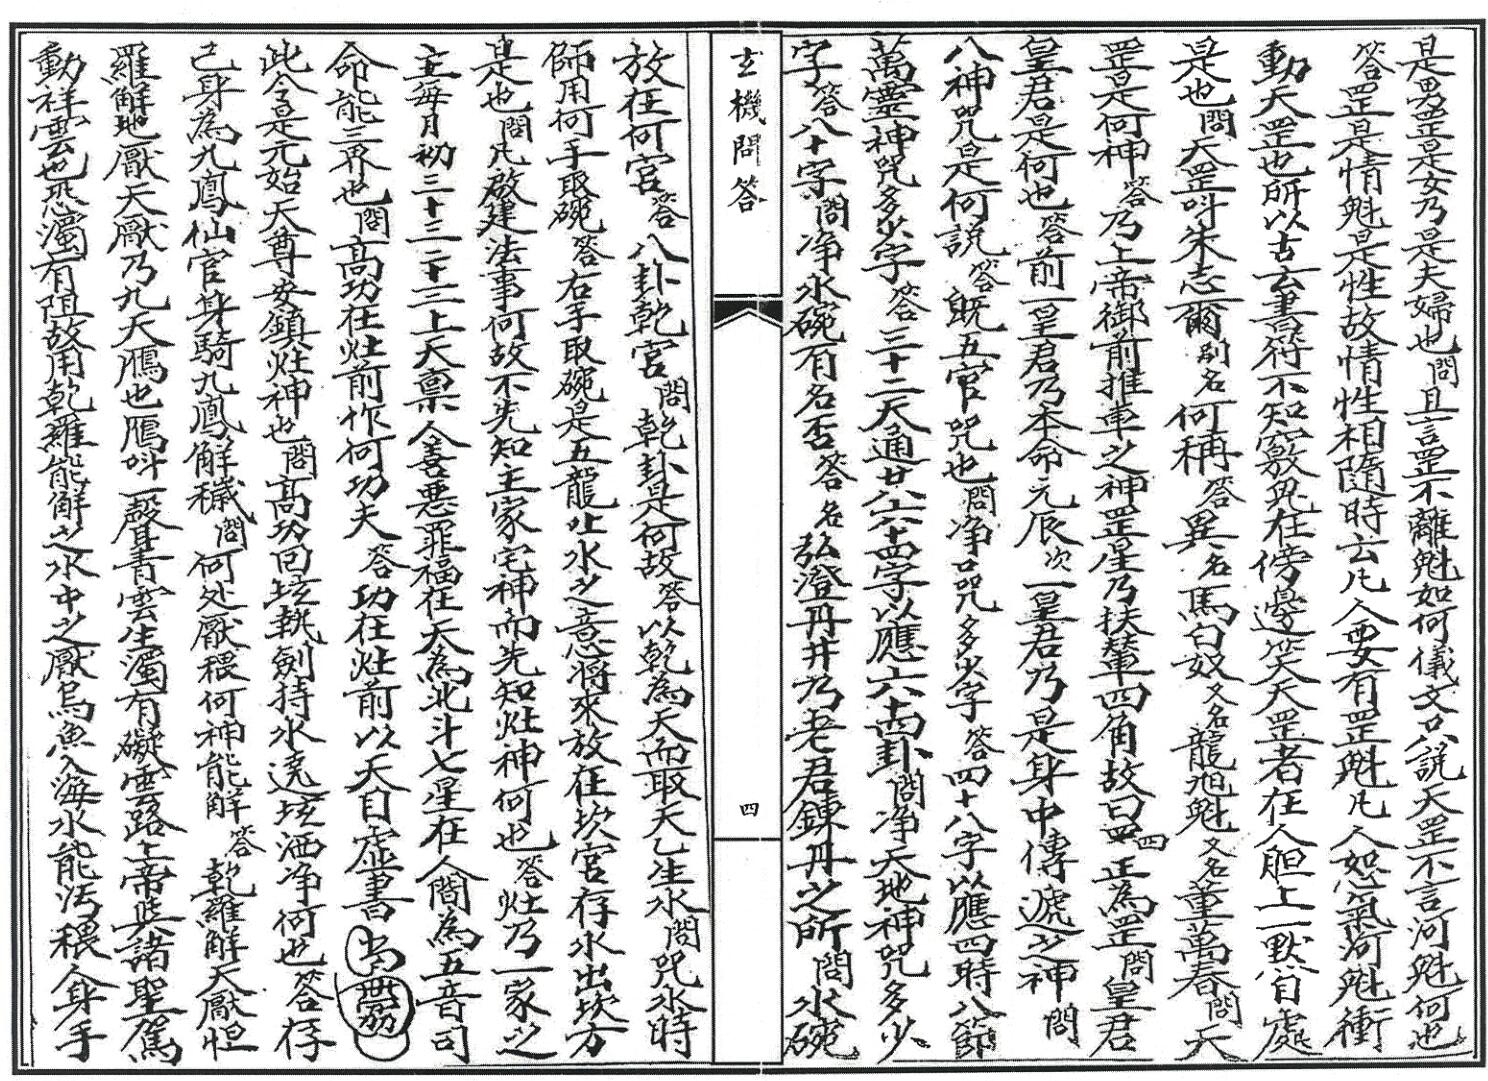 是男罡是女乃是夫婦也問且言罡不離魁如何儀文只說天罡不言河魁何也
答罡是情魁是性故情性相隨時云凡人要有罡魁凡人怒氣河魁衝
動天罡也所以古云書符不知竅鬼在傍邊笑天罡者在人胆上一默、處
是也問天罡呌朱志爾別名何稱答異名馬白奴又名龍旭魁又名董萬春問天
罡是何神答乃上帝御前推車之神罡星乃扶輦四角故曰四正為罡問皇君
皇君是何也答前一皇君乃本命元辰次一皇君乃是身中傳遞之神問
八神咒是何說答既五官咒也問净口咒多少字答四十八字以應四時八節
萬靈神咒多少字答三十二天通廿八六十四字以應六十四卦問净天地神咒多少
字答八十字問净水碗有名否答名弘澄丹井乃老君鍊丹之所問水碗
玄機問答
四
放在何宮答八卦乾宮問乾卦是何故答以乾為天而取天乙生水問咒水時
師用何手取碗答右手取碗是五龍吐水之意將來放在坎宮存水出坎方
是也問凡啟建法事何故不先知主家宅神而先知灶神何也答灶乃一家之
主每月初三十三二十三上天禀人善悪罪福在天為北斗七星在人間為五音司
命能三界也問高功在灶前作何功夫答功在灶前以天目虛書
此令是元始天尊安鎮灶神也問高功回壇執劍持水遶壇洒净何也答存
己身為九鳳仙官身騎九鳳解穢問何処厭穢何神能解答乾羅解天厭怛
羅解地厭天厭乃九天鴈也鴈呌一聲青雲生濁有礙雲路上帝與諸聖駕
動祥雲也恐濁有阻故用乾羅能解之水中之厭烏魚入海水能汚穢人身手